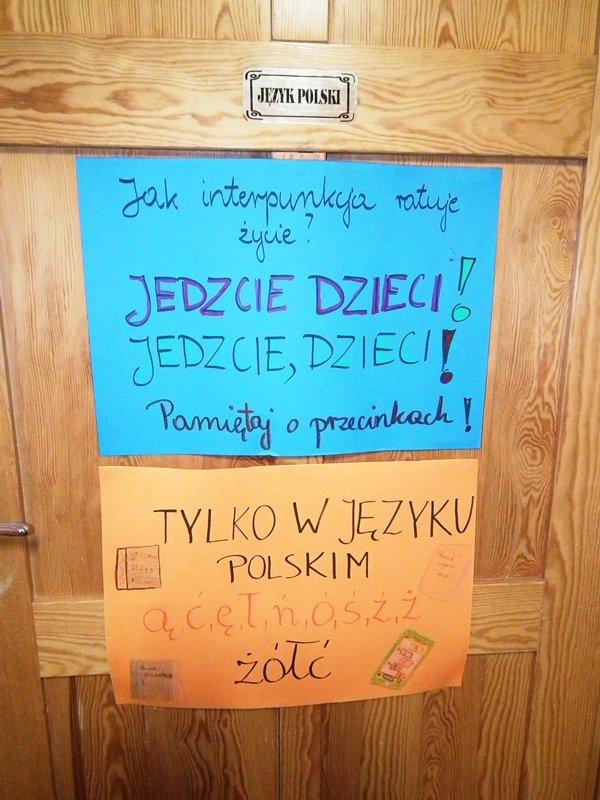 JĘZYK POLSKI
Jak interpunkcja ratuje
życie?
JEDZCIE DZIECI!
JEDZCIE, DZIECI!
Pamiętaj o przecinkach!
TYLKO W JĘZYKU
POLSKIM
ą,ć,ę,ł,ń,ó,ś,ź,ż
żółć